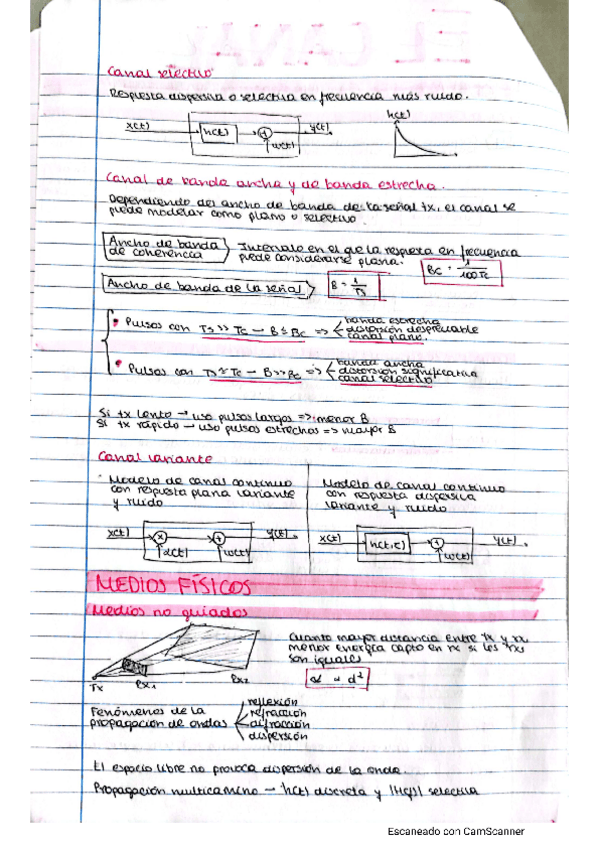 Canal selectivo
Respuesta dispersiva o selectiva en frecuencia más ruido.
x(t) h(t) + y(t)
w(t)
h(t)
Canal de banda ancha y de banda estrecha.
Dependiendo del ancho de banda de la señal tx, el canal se
puede modelar como plano o selectivo.
Ancho de banda
de coherencia
Intervalo en el que la respuesta en frecuencia
puede considerarse plana.
Bc = 1/100Tc
Ancho de banda de la señal
B = 1/Ts
• Pulsos con Ts >> Tc — B ≤ Bc => banda estrecha
distorsión despreciable
canal plano.
• Pulsos con Ts ≈ Tc — B >> Bc => banda ancha
distorsión significativa
canal selectivo
Si tx lento → uso pulsos largos => menor B
Si tx rápido → uso pulsos estrechos => mayor B
Canal variante
Modelo de canal continuo
con respuesta plana variante
y ruido
x(t) × + y(t)
α(t) w(t)
Modelo de canal continuo
con respuesta dispersiva
variante y ruido
x(t) h(t,τ) + y(t)
w(t)
MEDIOS FÍSICOS
Medios no guiados
Tx Rx1 Rx2
Cuanto mayor distancia entre tx y rx
menor energía capto en rx si las rxs
son iguales
α ∝ d²
Fenómenos de la
propagación de ondas
reflexión
refracción
difracción
dispersión
El espacio libre no provoca dispersión de la onda.
Propagación multicamino → h(t) discreta y |H(f)| selectiva
Escaneado con CamScanner